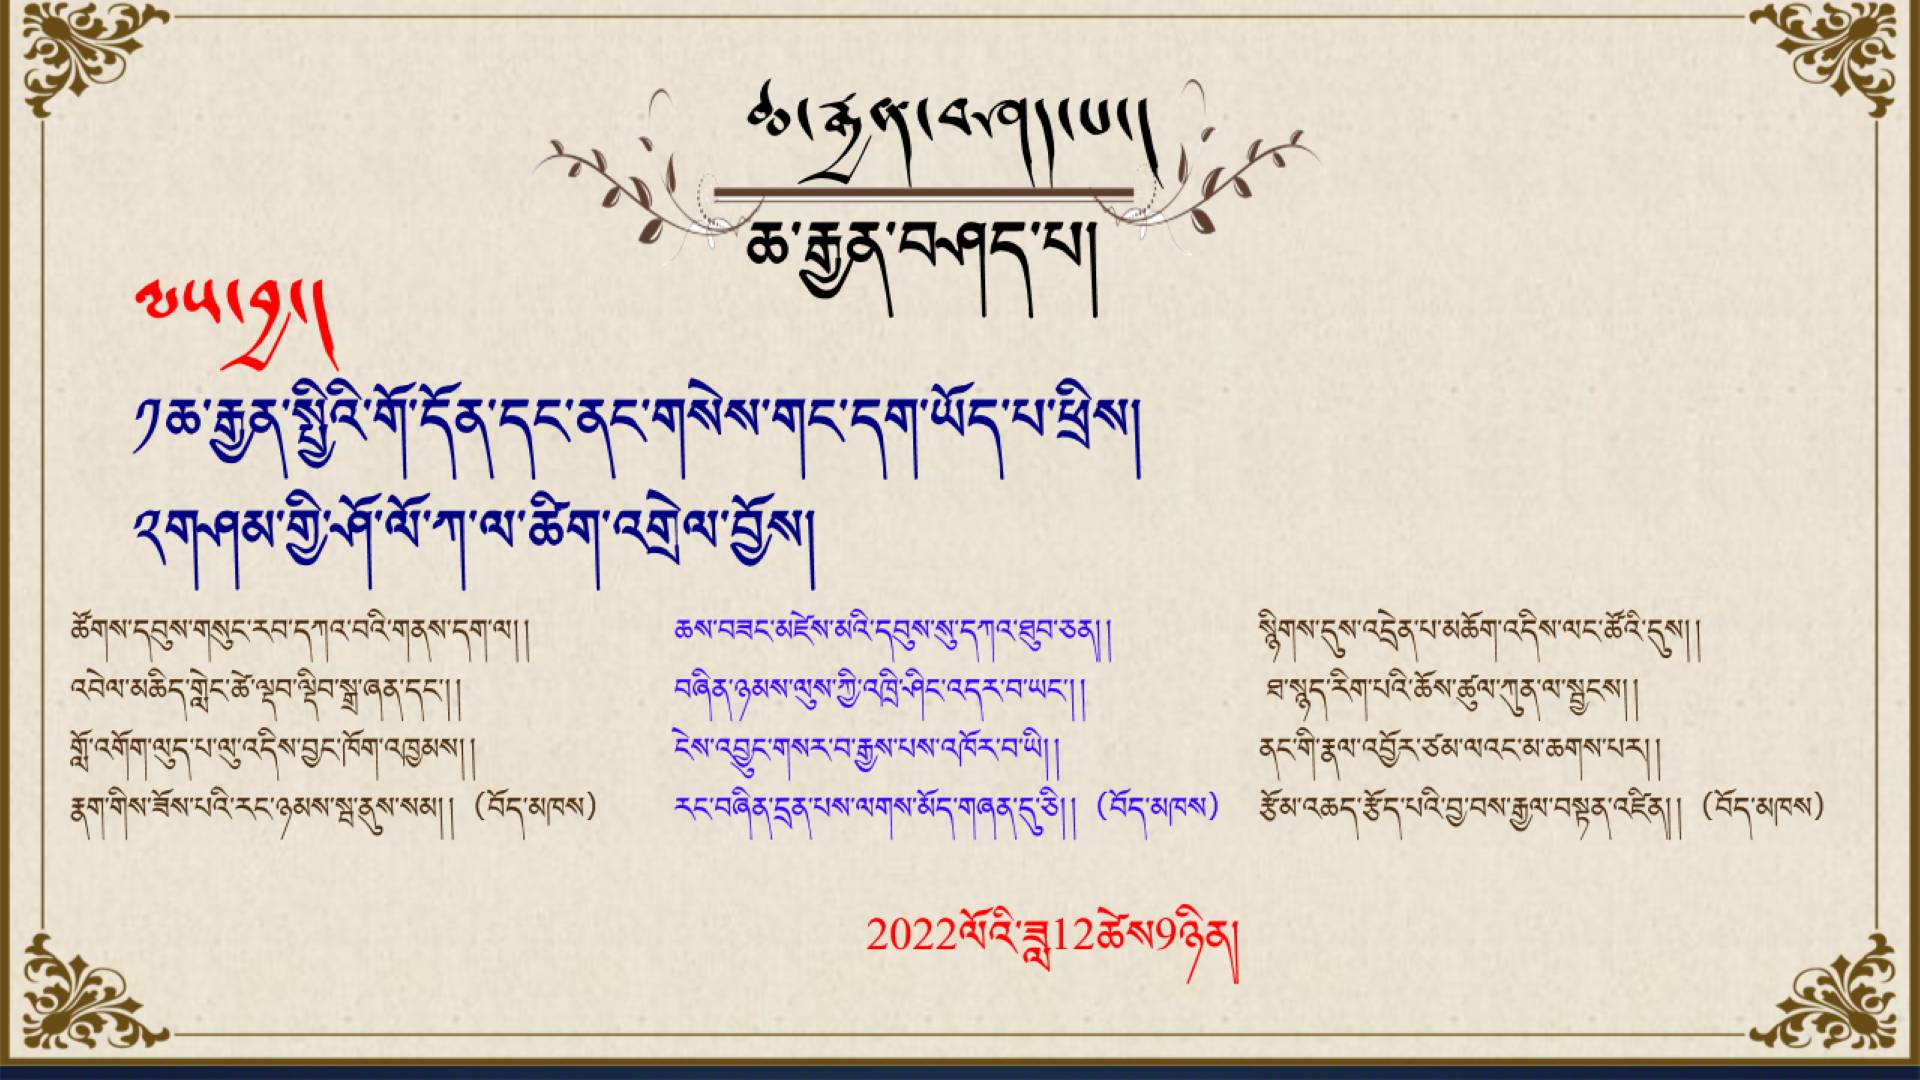 ཆ་རྐྱན་བཤད་པ།
ཆ་རྐྱན་བཤད་པ།
ལས་བྱ།
༡ཆ་རྐྱན་སྤྱིའི་གོ་དོན་དང་ནང་གསེས་གང་དག་ཡོད་པ་ཕྲིས།
༢གཤམ་གྱི་ཤོ་ལོ་ཀ་ལ་ཚིག་འགྲེལ་བྱོས།
ཚོགས་དབུས་གསུང་རབ་དཀའ་བའི་གནས་དག་ལ།།
འབེལ་མཆིད་གླེང་ཚེ་ལྡབ་ལྡིབ་སྒྲ་ཞན་དང་།།
གློ་འགོག་ལུད་པ་ལུ་འདིས་བྱང་ཁོག་འཁྱམས།།
རྔག་གིས་ཟོས་པའི་རང་ཉམས་སྦ་ནུས་སམ།། (བོད་མཁས)
ཆས་བཟང་མཛེས་མའི་དབུས་སུ་དཀའ་ཐུབ་ཅན།།
བཞིན་ཉམས་ལུས་ཀྱི་འཁྲི་ཤིང་འདར་བ་ཡང་།།
ངེས་འབྱུང་གསར་བ་རྒྱས་པས་འཁོར་བ་ཡི།།
རང་བཞིན་དྲན་པས་ལགས་མོད་གཞན་དུ་ཅི།། (བོད་མཁས)
སྙིགས་དུས་འདྲེན་པ་མཆོག་འདིས་ལང་ཚོའི་དུས།།
ཐ་སྙད་རིག་པའི་ཆོས་ཚུལ་ཀུན་ལ་སྦྱངས།།
ནང་གི་རྣལ་འབྱོར་ཙམ་ལའང་མ་ཆགས་པར།།
རྩོམ་འཆད་རྩོད་པའི་བྱ་བས་རྒྱལ་བསྟན་འཛིན།། (བོད་མཁས)
2022ལོའི་ཟླ12ཚེས9ཉིན།